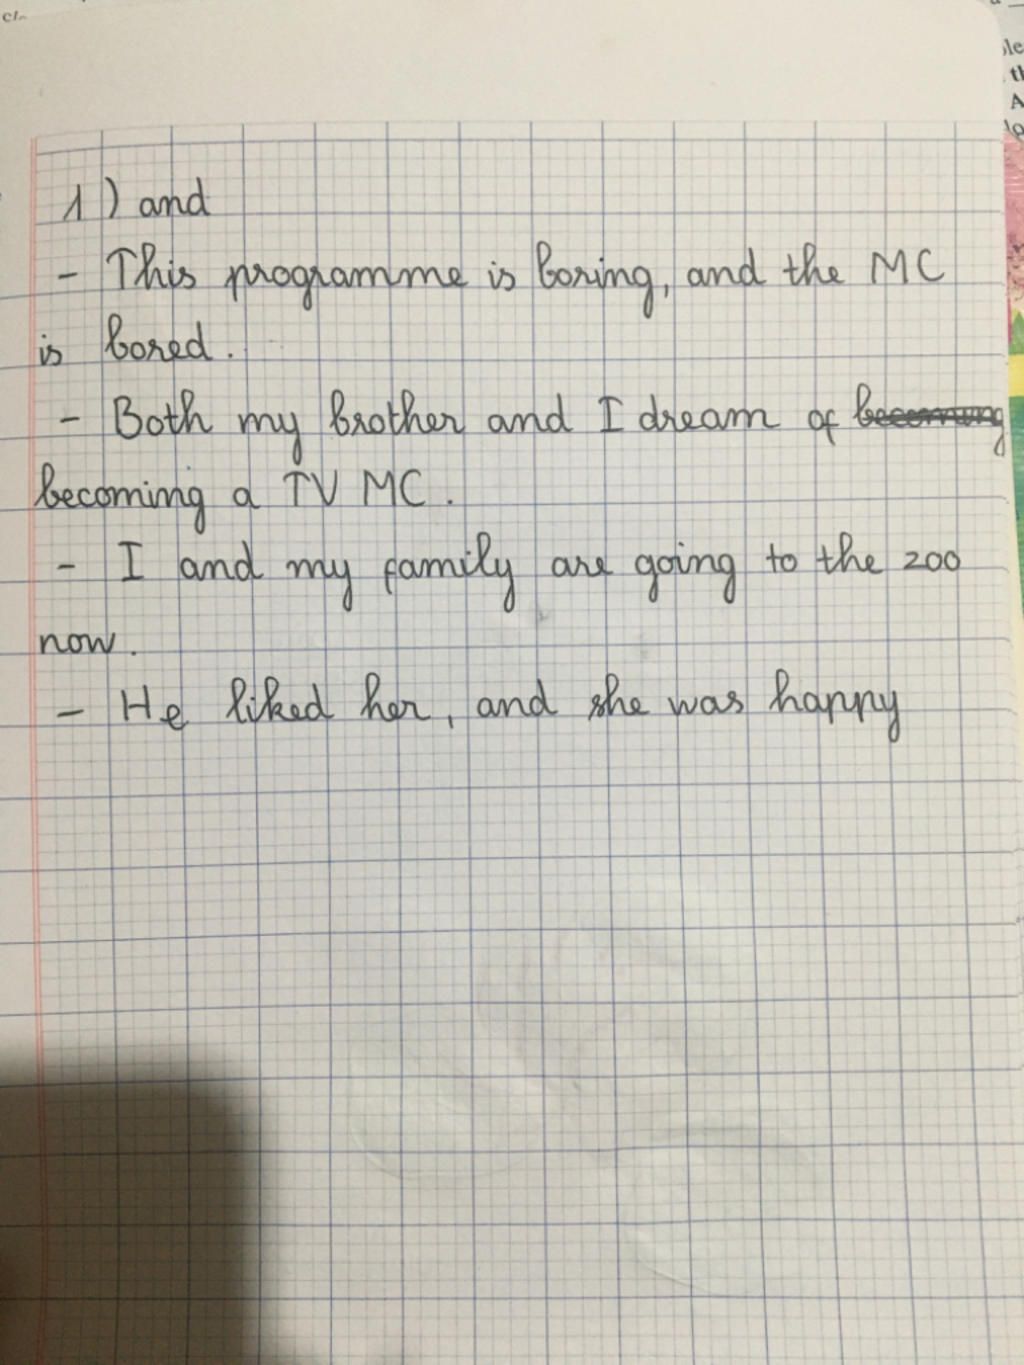 1) and
- This programme is boring, and the MC
is bored.
- Both my brother and I dream of becoming
becoming a TV MC.
- I and my family are going to the zoo
now.
- He liked her, and she was happy